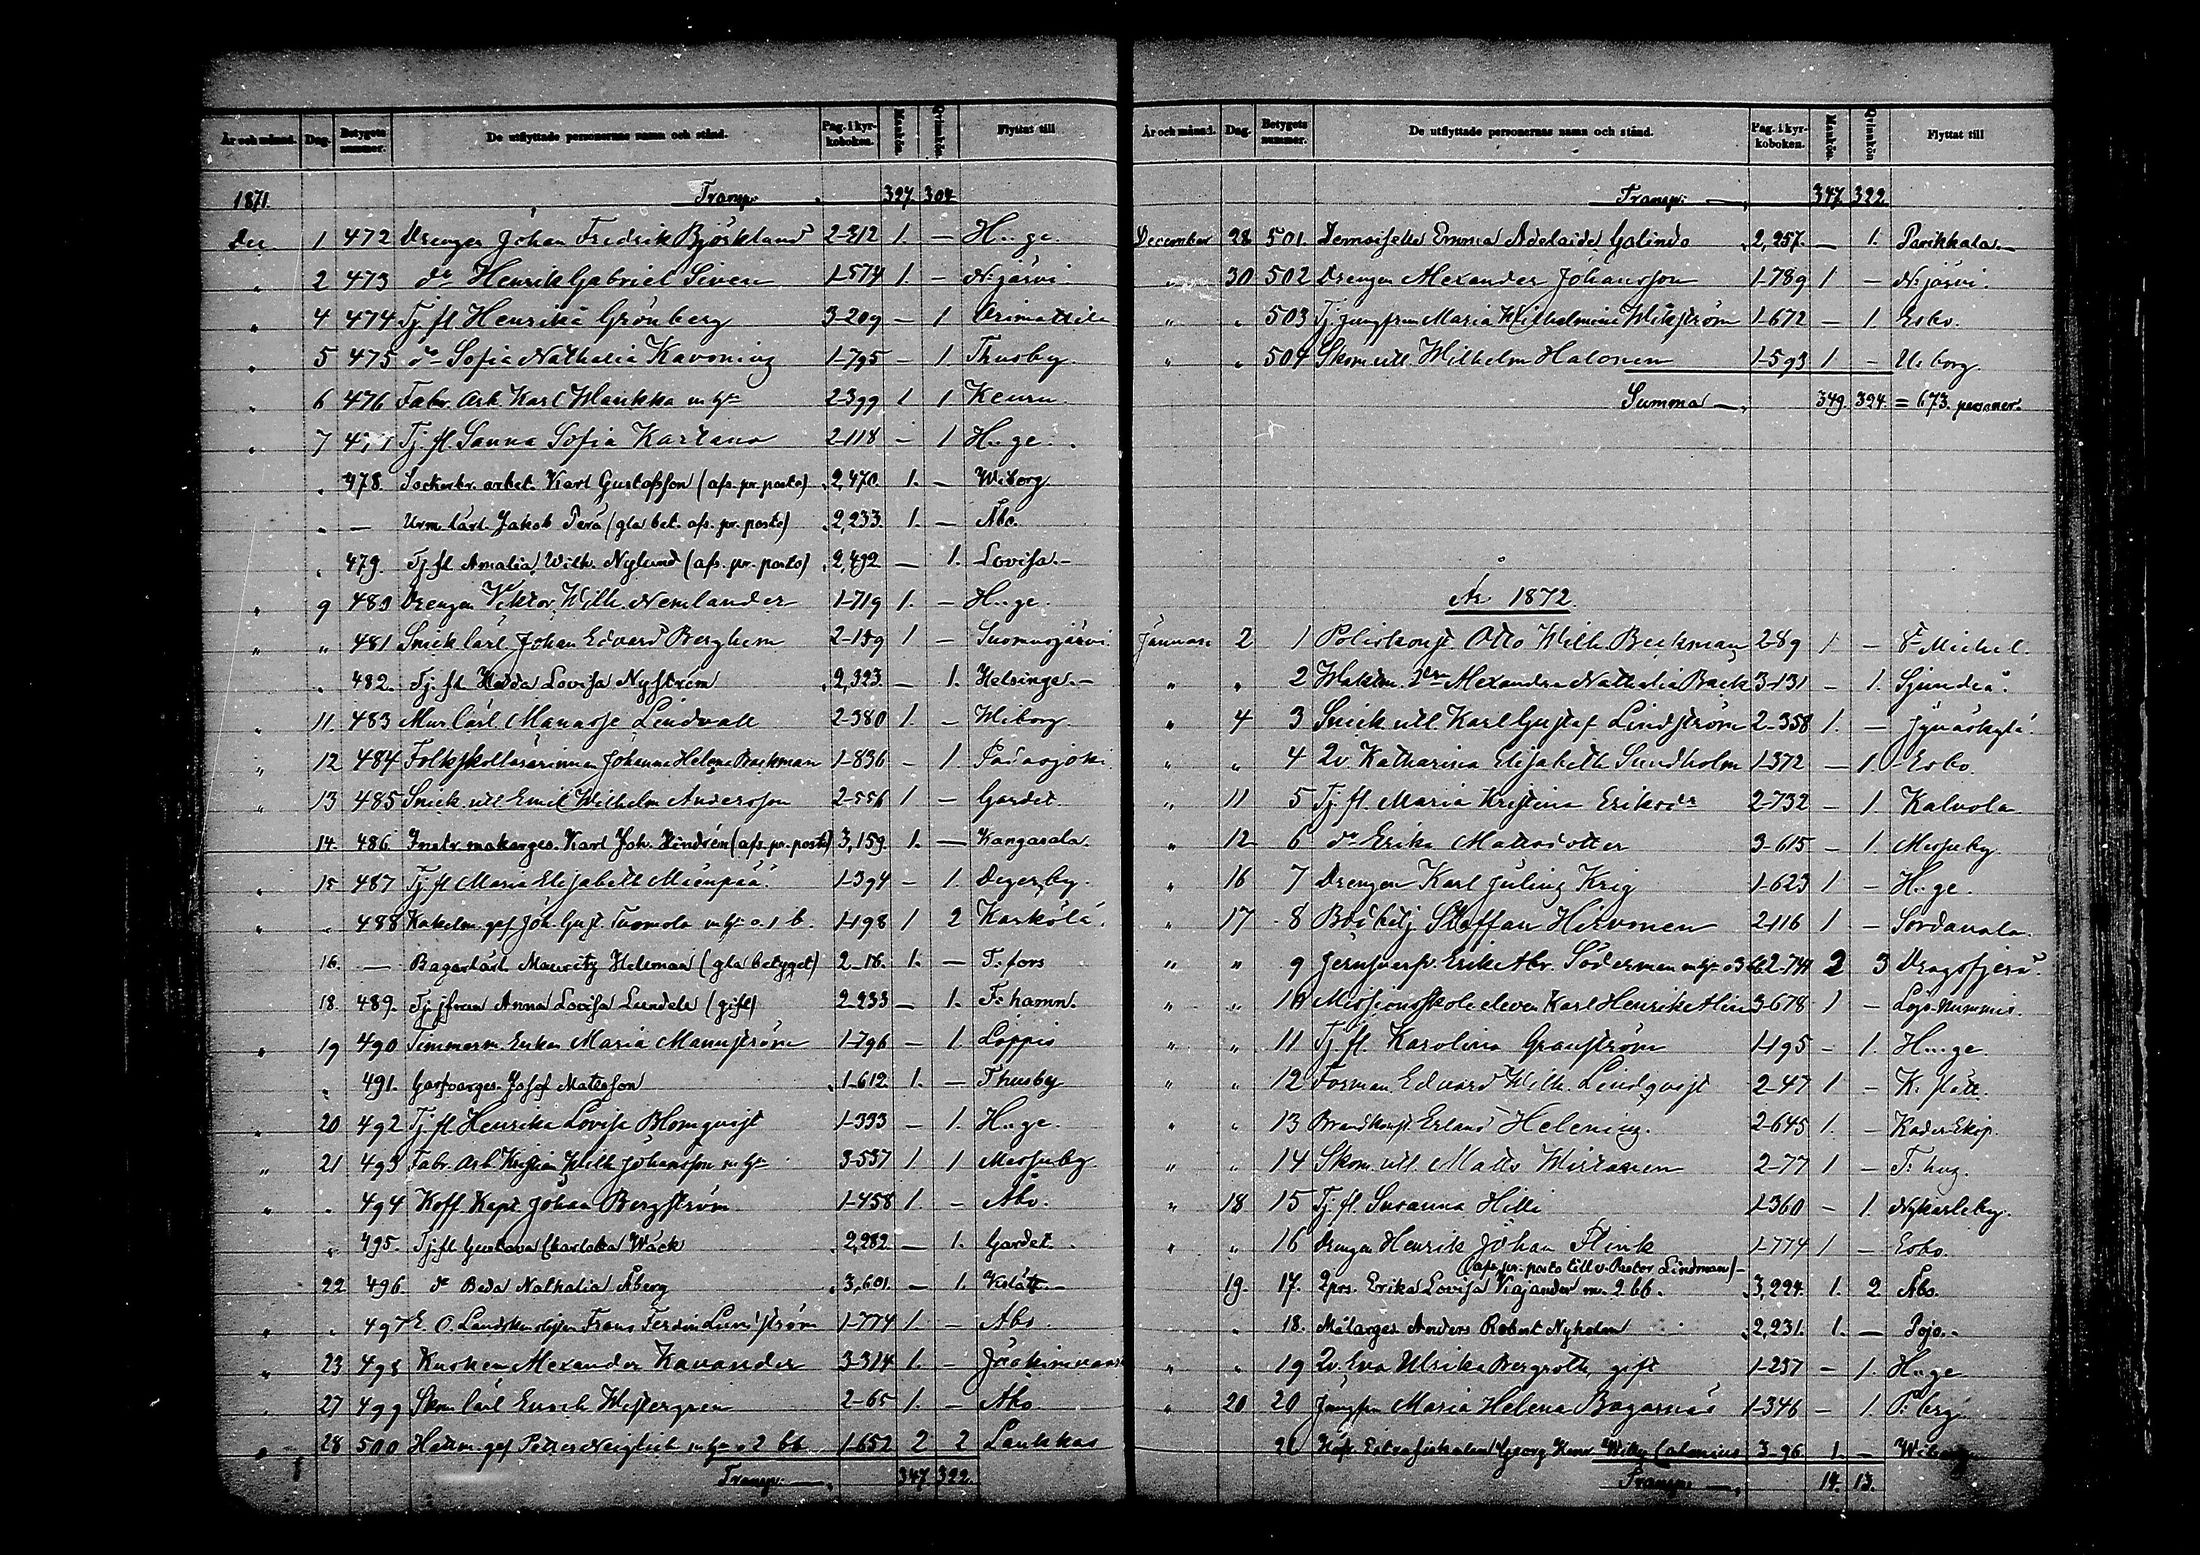 År och månad. Dag. Betygets nummer. De utflyttade personernas namn och stånd. Pag. i kyrkoboken. Mankön. Qvinnkön. Flyttat till
1871. Transp. 327 304
Dec. 1 472 Drengen Johan Fredrik Björklund 2-212 1. — H..ge.
„ 2 473 do Henrik Gabriel Siven 1-574 1. — N:järvi.
„ 4 474 Tj. fl. Henrika Grönberg 3-209 — 1
„ 5 475 do Sofia Nathalia 1-795 — 1. Thusby
„ 6 476 Fabr. Arb. Karl m. h. 2-399 1 1 Keuru
„ 7 Tj. fl. Sanna Sofia Kartano 2-118 — 1 H..ge.
„ 478. Sockerbr. arbet. Karl Gustafsson (afs. pr. posto) 2,470. 1. — Wiborg
„ — Urm. lärl. Jakob Perä (gla bet. afs. pr. posto) 2,233. 1. — Åbo.
„ 479. Tj. fl. Amalia Wilh. Nylund (afs. pr. posto) 2,492 — 1. Lovisa.—
„ 9 480 Drengen Viktor Wilh. Nemlander 1-719 1. — H..ge.
„ „ 481 Snick. lärl. Johan Edvard Berghem 2-159 1 — Suomusjärvi.
„ 482. Tj. fl. Hedda Lovisa Nyström 2,323 — 1. Helsinge.—
„ 11. 483 Mur. lärl. Manasse Lindvall 2-380 1. — Wiborg
„ 12 484 Folkskollärarinnan Johanna Helena Backman 1-836 — 1. Padasjoki
„ 13 485 Snick. utl. Emil Wilhelm Andersson 2-556 1 — Gardet.
14. 486. Instr. makargs. Karl Joh. Lindrén (afs. pr. posto) 3,159. 1. — Kangasala.
„ 15 487 Tj. fl. Maria Elisabeth Mäenpää. 1-394 — 1. Degerby.
„ „ 488 Kakelm. ges. Joh. Gust. Tuomola m. h. o. 1 b. 1-198 1 2 Kärkölä.
16. — Bagarlärl. Mauritz Hellman (gla betyget) 2-16. 1. — T:fors
18. 489. Tj. jfrun Anna Lovisa Lundell (gift) 2-233 — 1. F:hamn.
„ 19 490 Timmerm. Enkan Maria Mannström 1-796 — 1. Loppis
„ 491. Garfvarges. Josef Mattsson 1-612. 1. — Thusby
„ 20 492 Tj. fl. Henrika Lovisa Blomqvist 1-333 — 1. H..ge.
„ 21 493 Fabr. Arb. Kristian Wilh. Johansson m. h. 3-537 1 1 Messuby
„ „ 494 Koff. Kapt. Johan Bergström 1-458 1. — Åbo.
„ 495. Tj. fl. Gustava Charlotta Wäck 2,282 — 1. Gardet.
22 496. do Beda Nathalia Åberg 3,601. — 1. K:slätt.—
„ „ 497 E. O. Landskanslisten Frans Ferdin. Lundström 1-774 1. — Åbo
„ 23 498 Kusken Alexander Kavander 3-314 1. —
„ 27 499 Skom. lärl. Enoch Westergren 2-65 1. — Åbo.
„ 28 500 Hattm. ges. Petter Neiglick m. h. o. 2 bb. 1-652 2 2 Laukkas
Transp. — 347 322.
År och månad. Dag. Betygets nummer. De utflyttade personernas namn och stånd. Pag. i kyrkoboken. Mankön. Qvinnkön Flyttat till
Transp. — 347. 322.
December 28 501. Demoiselle Emma Adelaide Galindo 2,257. — 1. Parikkala.—
„ 30 502 Drengen Alexander Johansson 1-789 1 — N:järvi.
„ „ 503 Tj. jungfrun Maria Wilhelmina Wikström 1-672 — 1. Esbo.
„ „ 504 Skom. utl. Wilhelm Halonen 1-593 1 — Uleborg
Summa — 349. 324. = 673. personer.
År 1872.
Januari 2 1 Poliskonst. Otto Wilh. Beckman 2-89 1 — St Michel.
„ „ 2 Waktm. dr Alexandra Nathalia Back 3-131 — 1. Sjundeå.
„ 4 3 Snick. utl. Karl Gustaf Lindström 2-358 1. — Jyväskylä.
„ „ 4 Qv. Katharina Elisabeth Sundholm 1-372 — 1. Esbo.
„ 11 5 Tj. fl. Maria Kristina Eriksdr 2-732 — 1. Kalvola
„ 12 6 do Erika Mattsdotter 3-615 — 1. Messuby.
„ 16 7 Drengen Karl Julius Krig 1-623 1 — H..ge.
„ 17 8 Staffan Hirvonen 2-116 1 — Sordavala.
„ „ 9 Erik Abr. Söderman m. h. o. 3 bb. 2-744 2 3 Dragsfjerd.
„ „ 10 Missionsskoleeleven Karl Henrik Alin 3-678 1 — Lojo-Nummis.
„ „ 11 Tj. fl. Karolina Granström 1-195 — 1. H..ge.
„ „ 12 Forman Edvard Wilh. Lindqvist 2-47 1 — K:slätt.
„ „ 13 Brandkonst. Erland Helenius. 2-645 1. —
„ „ 14 Skom. utl. Matts Wirtanen 2-77 1 — T:hus.
„ 18 15 Tj. fl. Susanna Hilli 1-360 — 1. Nykarleby.
„ „ 16 Drengen Henrik Johan Flink 1-774 1 — Esbo.
(afs. pr. posto till v. Pastor Lindman)—
19. 17. Qprs. Erika Lovisa Kajander m. 2 bb. 3,224. 1. 2 Åbo.
„ 18. Målarges. Anders Robert Nyholm 2,231. 1. — Pojo.—
„ „ 19 Qv. Eva Ulrika Bergroth, gift 1-257 — 1. H..ge
„ 20 20 Jungfrun Maria Helena Bagarnäs 1-346 — 1. P:berg.
21 Georg Henr. Willy Calonius 3-96 1. — Wiborg
Transp. — 14. 13.